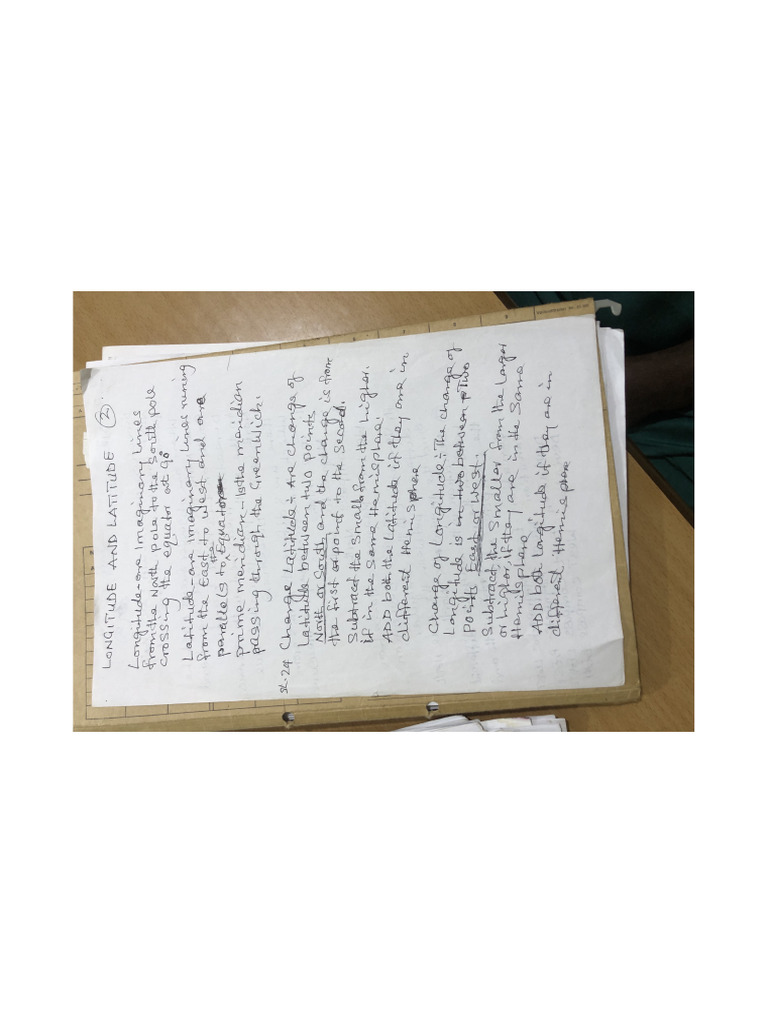 LONGITUDE AND LATITUDE (2)
Longitude - are imaginary lines
from the North pole to the South pole
crossing the equator at 90
Latitude - are imaginary lines runing
from the East to West and are
parallels to the Equator
prime meridian - Is the meridian
passing through the GreenWich.
SL.24 Change Latitude :- Are change of
Latitude between two points
North or South and the change is from
the first point to the second.
Subtract the Small from the higher.
if in the Same Hemisphere.
ADD both the Latitude if they are in
different Hemisphere
Change of Longitude :- The change of
Longitude is in two between Two
Points East or West.
Subtract the Smaller from the larger
or higher, if they are in the Same
Hemisphere
ADD both Longitude if they are in
different Hemisphere